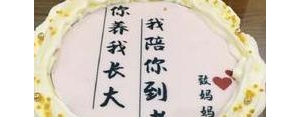 你养我长大
我陪你到
致妈妈